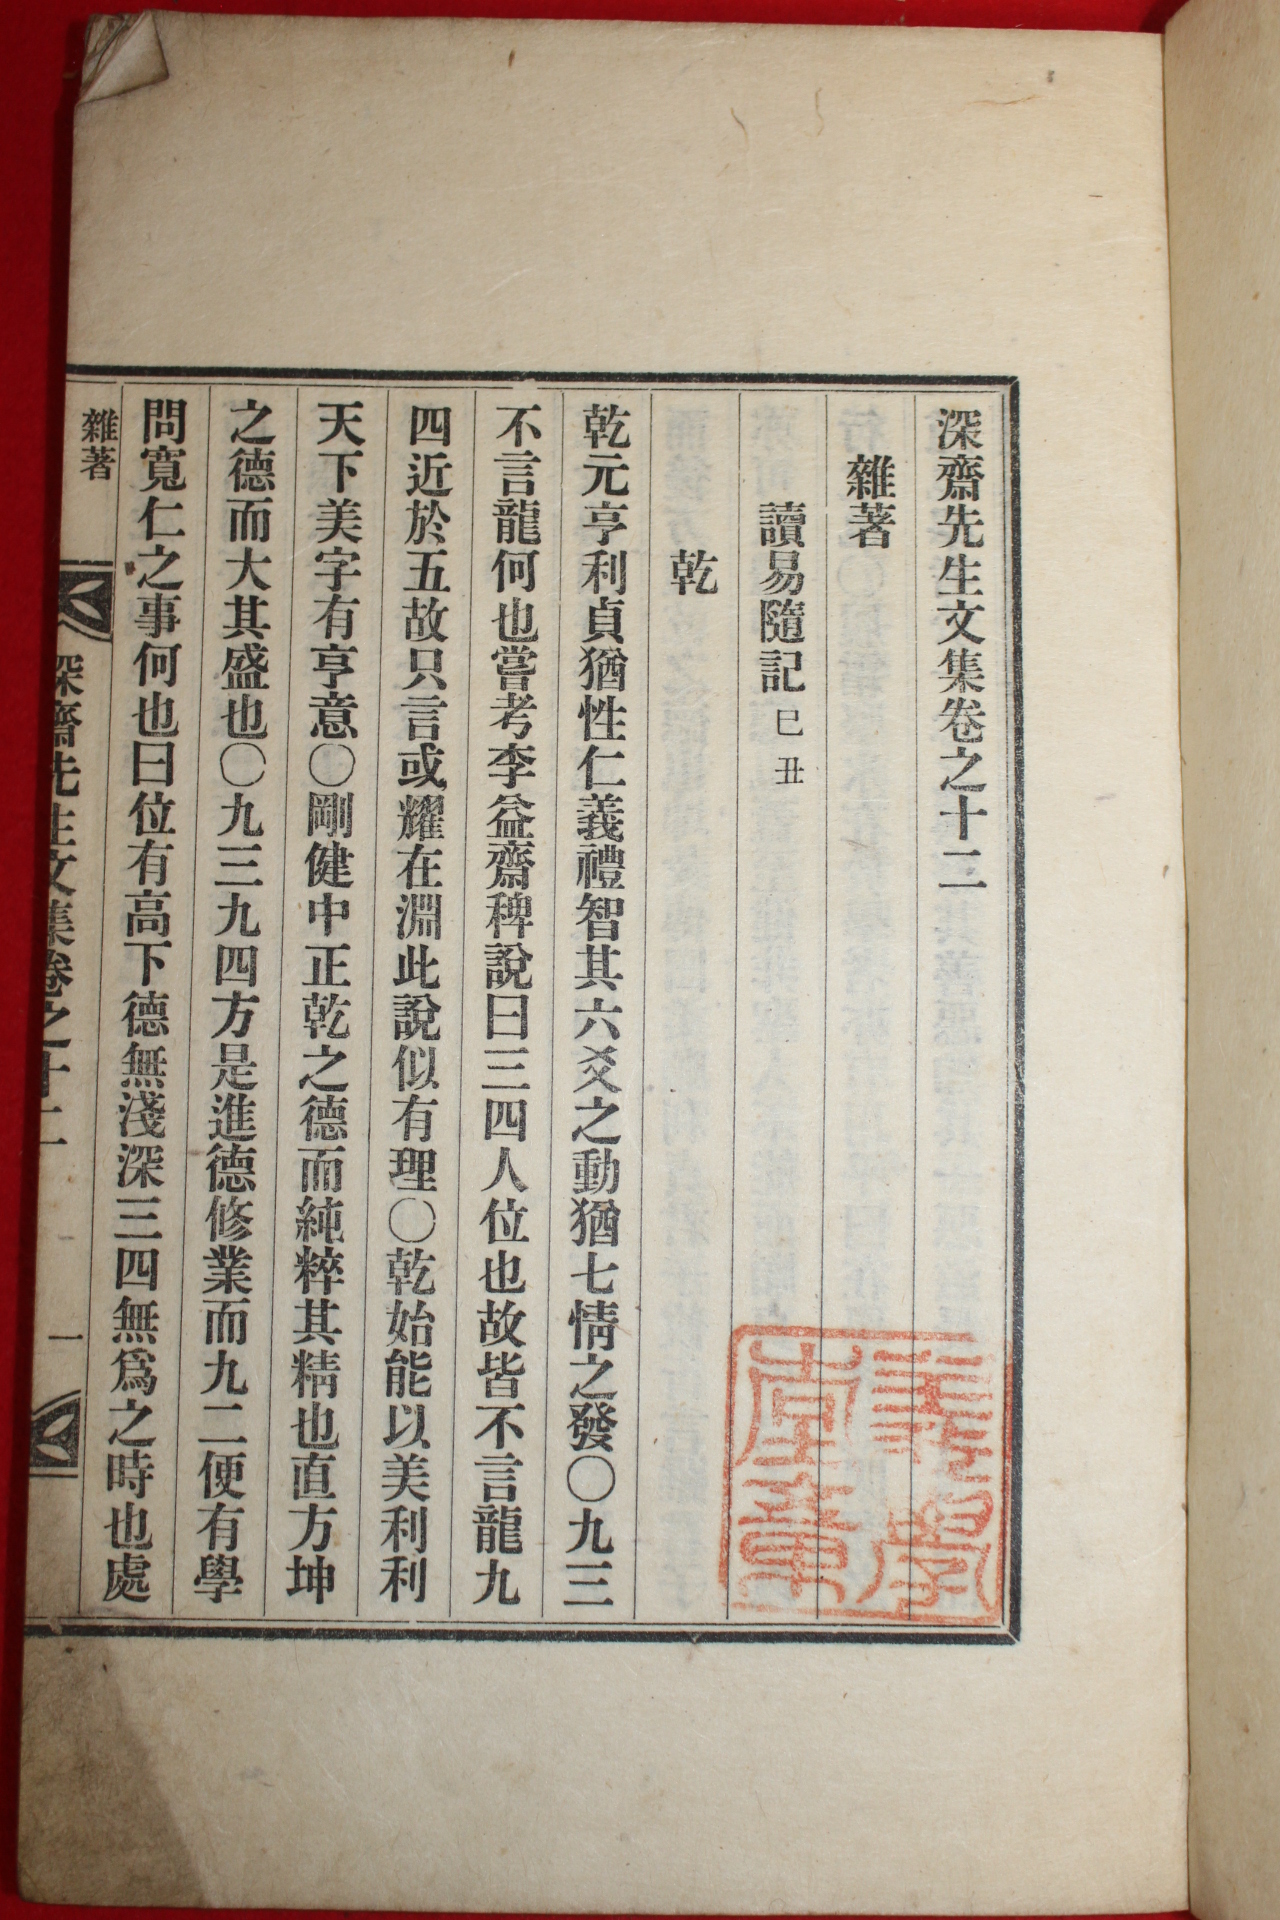 深齋先生文集卷之十二
雜著
讀易隨記 己丑
乾
乾元亨利貞猶性仁義禮智其六爻之動猶七情之發〇九三
不言龍何也嘗考李益齋稗說曰三四人位也故皆不言龍九
四近於五故只言或耀在淵此說似有理〇乾始能以美利利
天下美字有亨意〇剛健中正乾之德而純粹其精也直方坤
之德而大其盛也〇九三九四方是進德修業而九二便有學
問寬仁之事何也曰位有高下德無淺深三四無爲之時也處
雜著
深齋先生文集卷之十二
一
義學
堂章